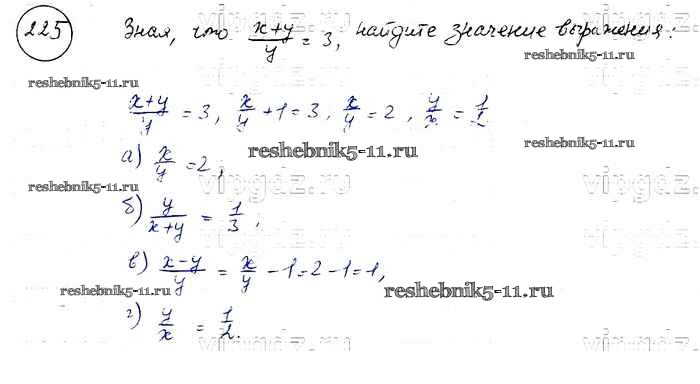 225 Зная, что (x+y)/y = 3, найдите значение выражения:
reshebnik5-11.ru reshebnik5-11.ru
(x+y)/y = 3, x/y + 1 = 3, x/y = 2, y/x = 1/2
а) x/y = 2,
reshebnik5-11.ru
reshebnik5-11.ru reshebnik5-11.ru
vipgdz.ru vipgdz.ru
б) y/(x+y) = 1/3,
в) (x-y)/y = x/y - 1 = 2 - 1 = 1,
reshebnik5-11.ru reshebnik5-11.ru
г) y/x = 1/2.
vipgdz.ru vipgdz.ru